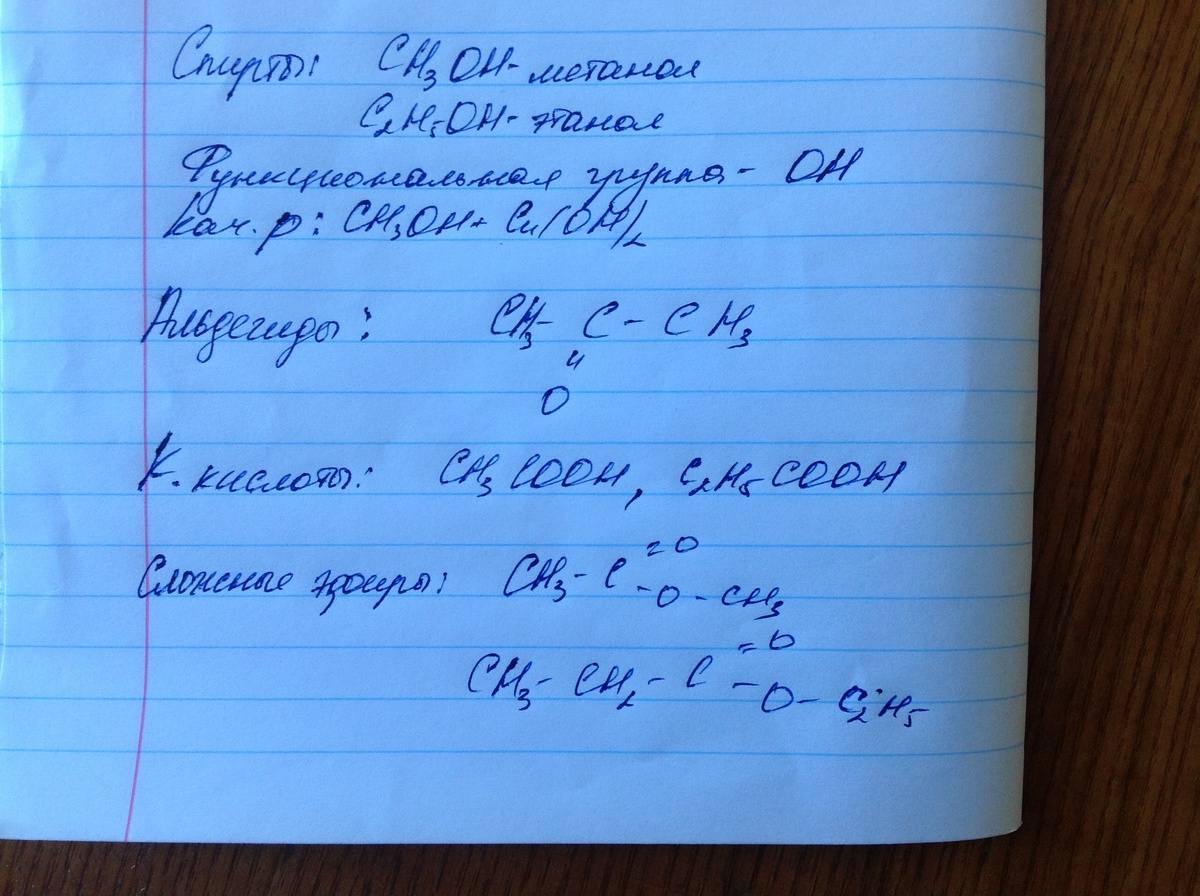 Спирты: CH₃OH - метанол
C₂H₅OH - этанол
Функциональная группа - OH
Кач. р: CH₃OH + Cu(OH)₂
Альдегиды: CH₃ - C - CH₃
"
O
К. кислоты: CH₃COOH, C₂H₅COOH
=O
Сложные эфиры: CH₃ - C
- O - CH₃
=O
CH₃ - CH₂ - C
- O - C₂H₅